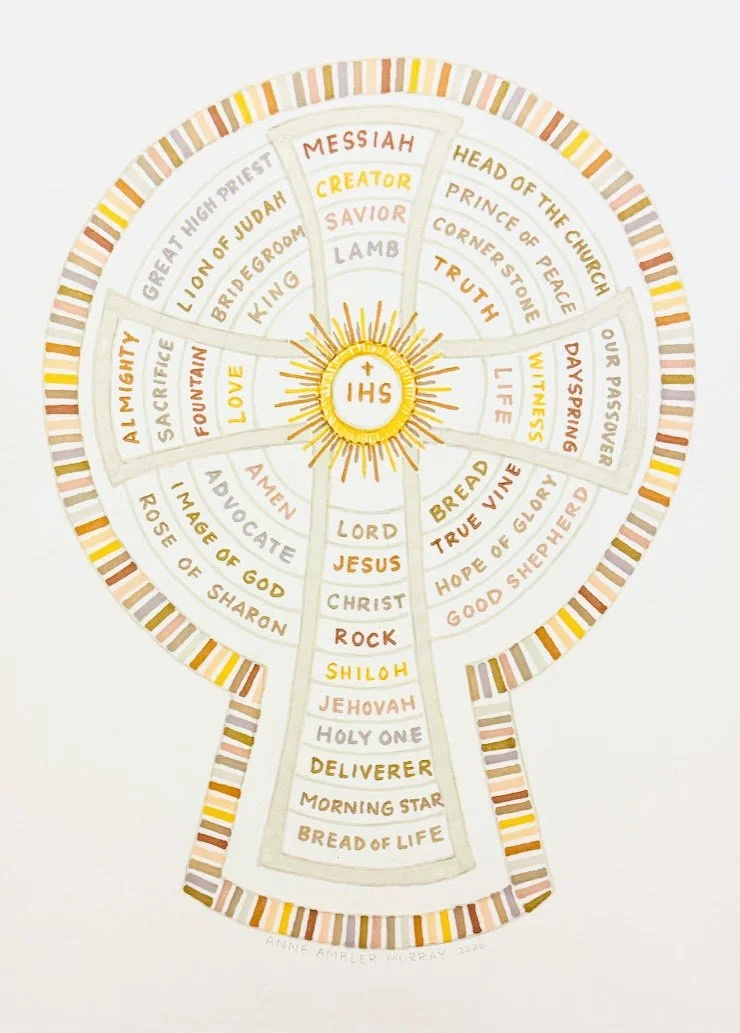 MESSIAH
CREATOR
SAVIOR
LAMB
GREAT HIGH PRIEST
LION OF JUDAH
BRIDEGROOM
KING
HEAD OF THE CHURCH
PRINCE OF PEACE
CORNERSTONE
TRUTH
ALMIGHTY
SACRIFICE
FOUNTAIN
LOVE
IHS
LIFE
WITNESS
DAYSPRING
OUR PASSOVER
AMEN
ADVOCATE
IMAGE OF GOD
ROSE OF SHARON
BREAD
TRUE VINE
HOPE OF GLORY
GOOD SHEPHERD
LORD
JESUS
CHRIST
ROCK
SHILOH
JEHOVAH
HOLY ONE
DELIVERER
MORNING STAR
BREAD OF LIFE
ANNE AMBLER MURRAY